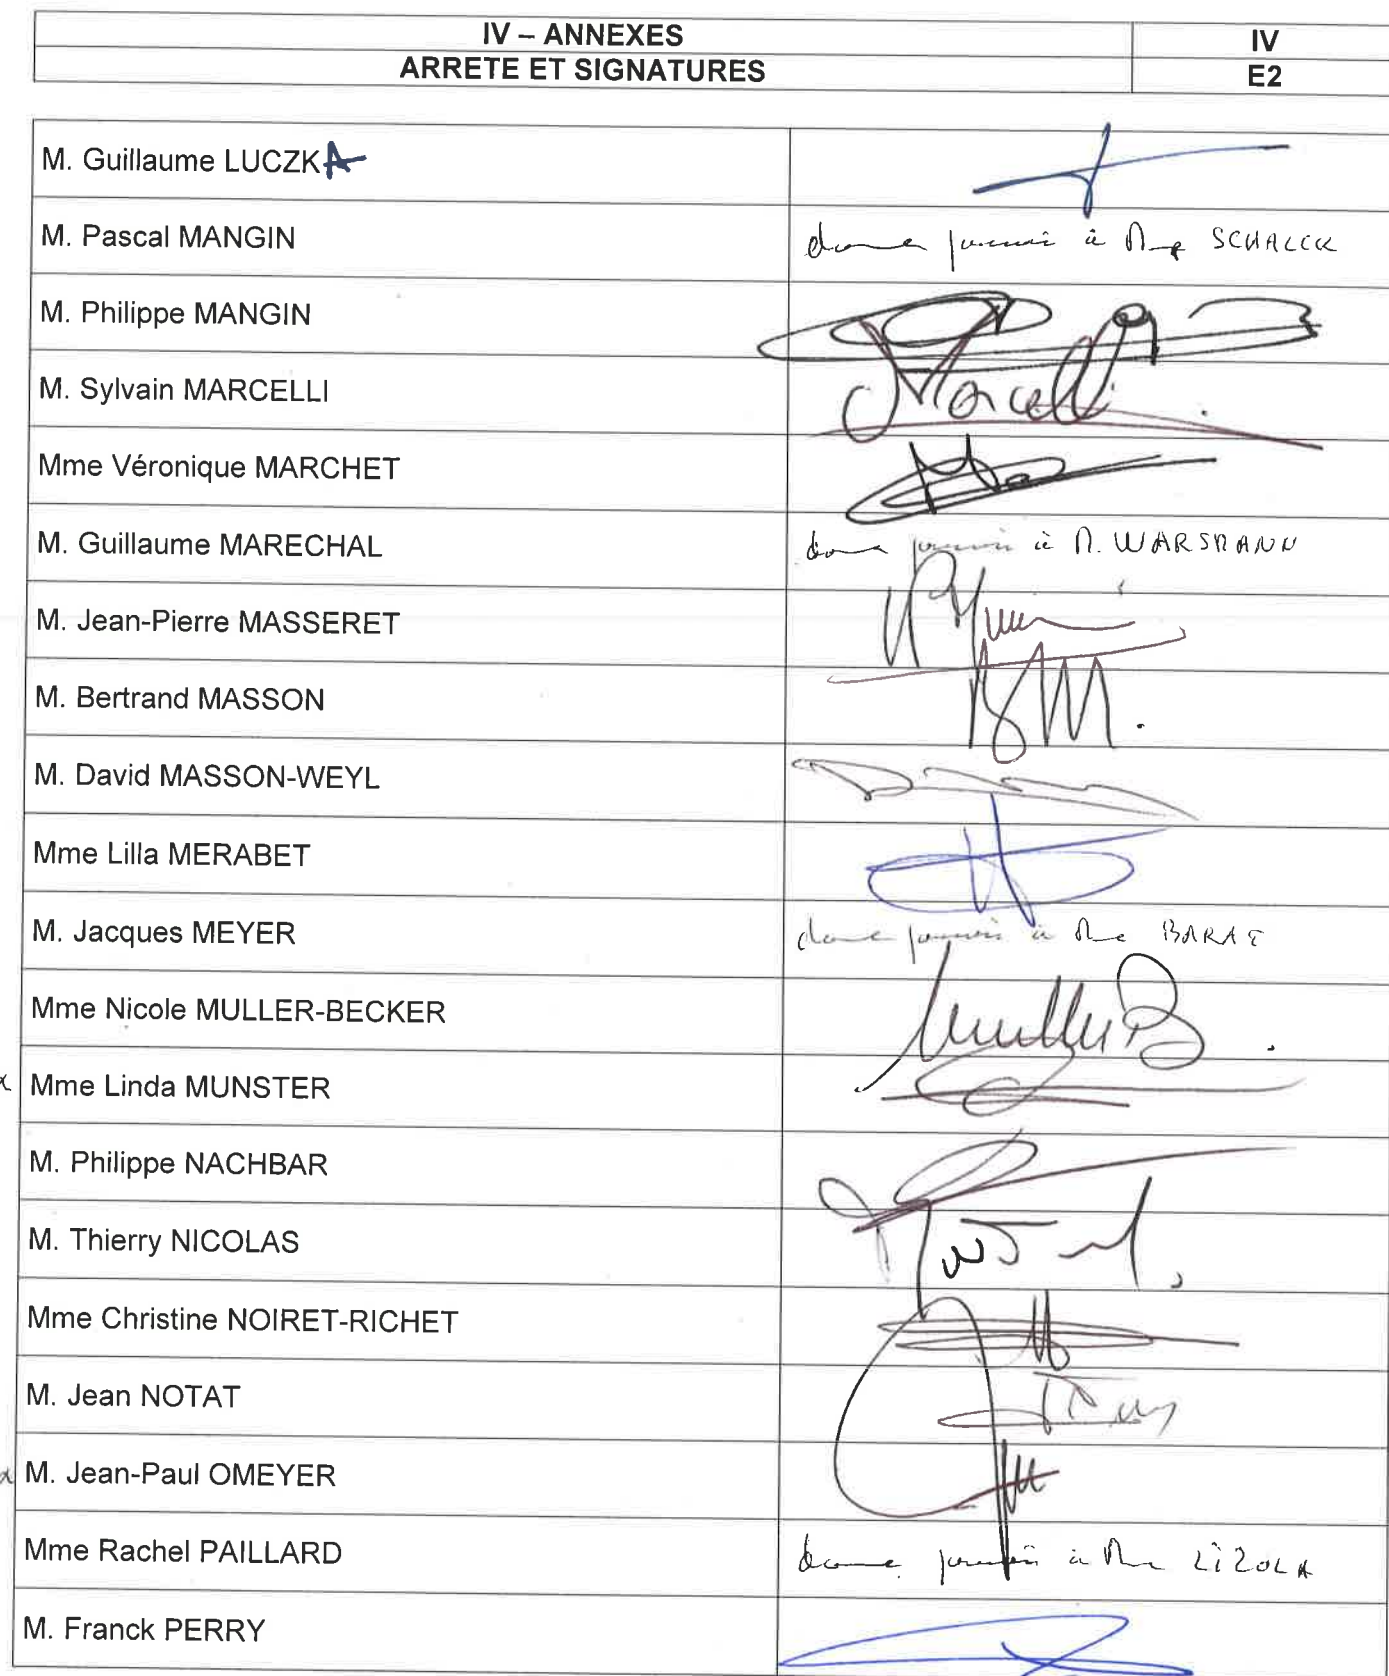 IV – ANNEXES IV
ARRETE ET SIGNATURES E2
M. Guillaume LUCZKA
M. Pascal MANGIN donne pouvoir à Mme SCHALCK
M. Philippe MANGIN
M. Sylvain MARCELLI Marcelli
Mme Véronique MARCHET
M. Guillaume MARECHAL donne pouvoir à M. WARSMANN
M. Jean-Pierre MASSERET
M. Bertrand MASSON BM.
M. David MASSON-WEYL
Mme Lilla MERABET
M. Jacques MEYER donne pouvoir à Mme BARAT
Mme Nicole MULLER-BECKER MullerB
Mme Linda MUNSTER
M. Philippe NACHBAR
M. Thierry NICOLAS
Mme Christine NOIRET-RICHET
M. Jean NOTAT
M. Jean-Paul OMEYER
Mme Rachel PAILLARD donne pouvoir à Mme LIZOLA
M. Franck PERRY